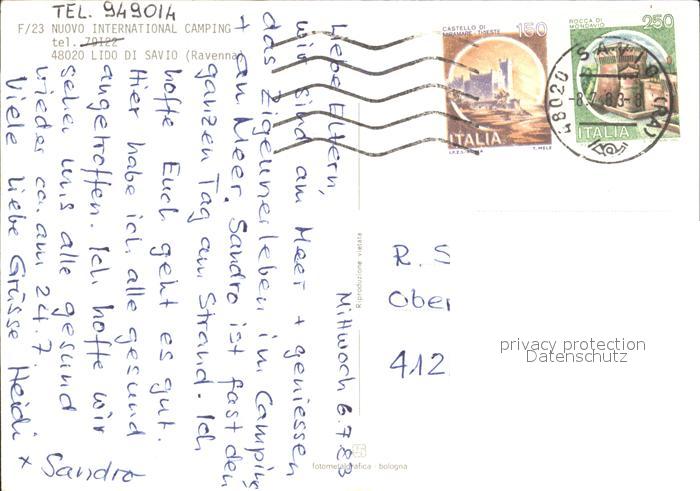 TEL. 949014
F/23 NUOVO INTERNATIONAL CAMPING
tel. 79122
48020 LIDO DI SAVIO (Ravenna)
CASTELLO DI
MIRAMARE - TRIESTE
150
ITALIA
I.P.Z.S. ROMA
T. MELE
ROCCA DI
MONDAVIO
250
ITALIA
48020 SAVIO (RA)
-8.7.83-8
Mittwoch 6.7.83
Liebe Eltern,
wir sind am Meer + geniessen
das Zigeunerleben im Camping
+ am Meer. Sandro ist fast den
ganzen Tag am Strand. Ich
hoffe Euch geht es gut.
Hier habe ich alle gesund
angetroffen. Ich hoffe wir
sehen uns alle gesund
wieder ca. am 24.7.
Viele liebe Grüsse Heidi +
Sandro
R. S
Ober
412
Riproduzione vietata
fotometalgrafica - bologna
privacy protection
Datenschutz